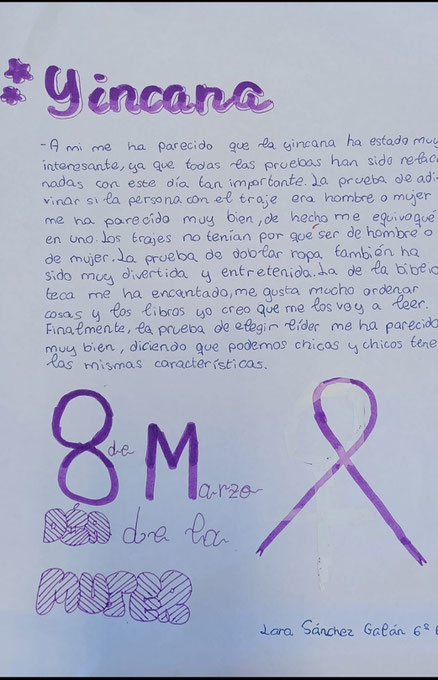 Yincana
- A mi me ha parecido que la yincana ha estado muy
interesante, ya que todas las pruebas han sido relacio
nadas con este día tan importante. La prueba de adi-
vinar si la persona con el traje era hombre o mujer
me ha parecido muy bien, de hecho me equivoqué
en uno. Los trajes no tenían por qué ser de hombre o
de mujer. La prueba de doblar ropa también ha
sido muy divertida y entretenida. La de la biblio
teca me ha encantado, me gusta mucho ordenar
cosas y los libros yo creo que me los voy a leer.
Finalmente, la prueba de elegir líder me ha parecido
muy bien, diciendo que podemos chicas y chicos tene
las mismas características.
8 de Marzo
DÍA de la
MUJER
Lara Sánchez Galán 6º